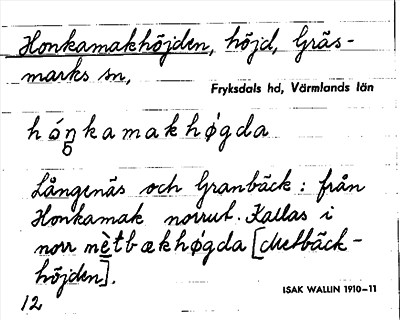 Honkamakhöjden, höjd, Gräs-
marks sn,
Fryksdals hd, Värmlands län
hóŋkamakhǿgda
Långenäs och Granbäck: från
Honkamak norrut. Kallas i
norr mètbækhǿgda [Metbäck-
höjden].
12
ISAK WALLIN 1910-11